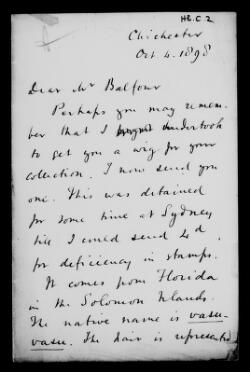 HB.C.2
Chichester
Oct 4. 1898
Dear Mr Balfour
Perhaps you may remem-
ber that I undertook
to get you a wig for your
collection. I now send you
one. This was detained
for some time at Sydney
till I could send 4d.
for deficiency in stamps.
It comes from Florida
in the Solomon Islands.
The native name is vasu-
vasu. The hair is represented